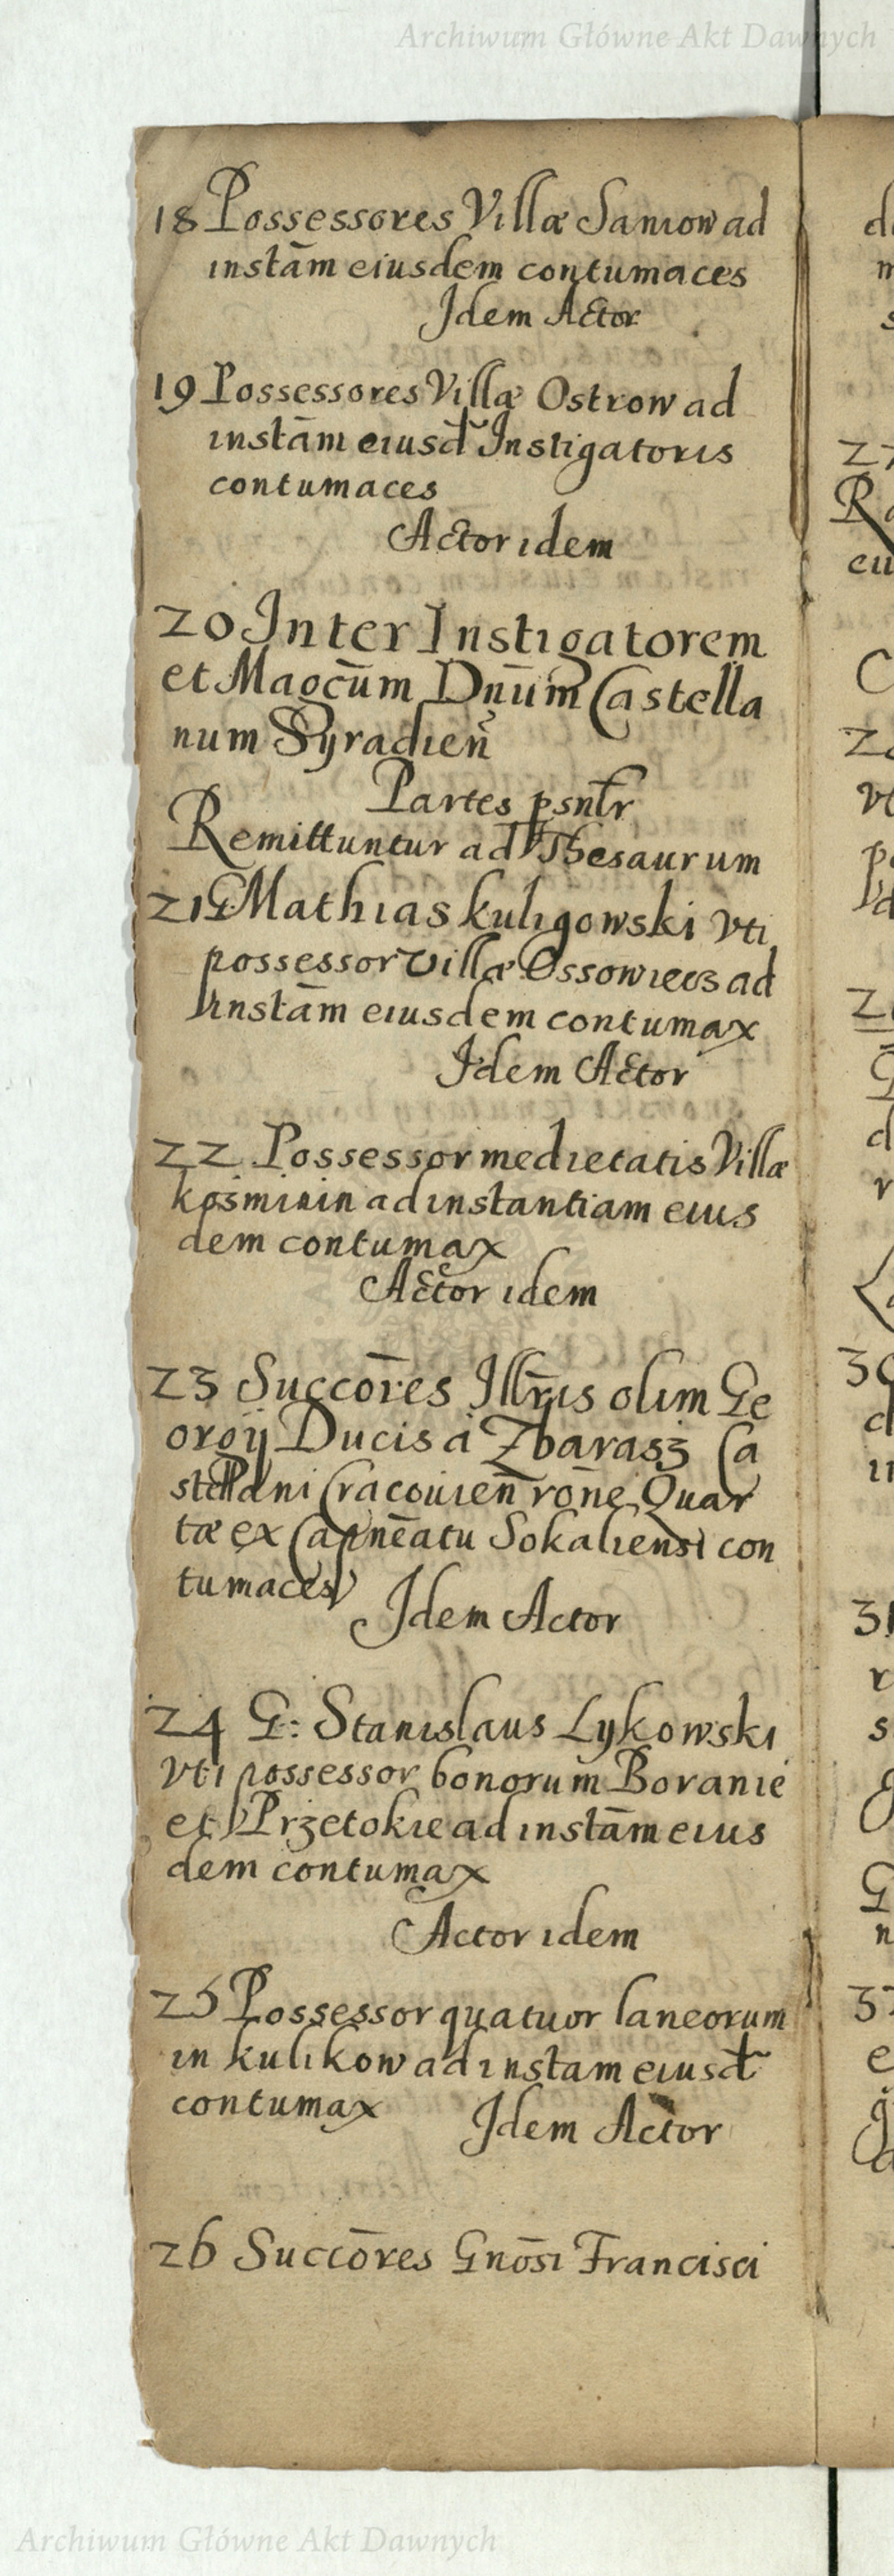 Archiwum Główne Akt Dawnych
18 Possessores Villæ Saniow ad
instām eiusdem contumaces
Idem Actor
19 Possessores Villæ Ostrow ad
instām eiusd Instigatoris
contumaces
Actor idem
20 Inter Instigatorem
et Magcūm Dnūm Castella
num Syradien̄
Partes psntr
Remittuntur ad Thesaurum
21 G Mathias kuligowski vti
possessor villæ Ossowiecz ad
instām eiusdem contumax
Idem Actor
22 Possessor medietatis Villæ
kosminin ad instantiam eius
dem contumax
Actor idem
23 Succōres Illr̄is olim Ge
orgij Ducis a Zbarasz Ca
stellani Cracouien̄ rōne Quar
tæ ex Capnēatu Sokaliensi con
tumaces
Idem Actor
24 G: Stanislaus Lykowski
vti possessor bonorum Boranie
et Przetokie ad instām eius
dem contumax
Actor idem
25 Possessor quatuor laneorum
in kulikow ad instam eiusd
contumax Idem Actor
26 Succōres Gnōsi Francisci
Archiwum Główne Akt Dawnych